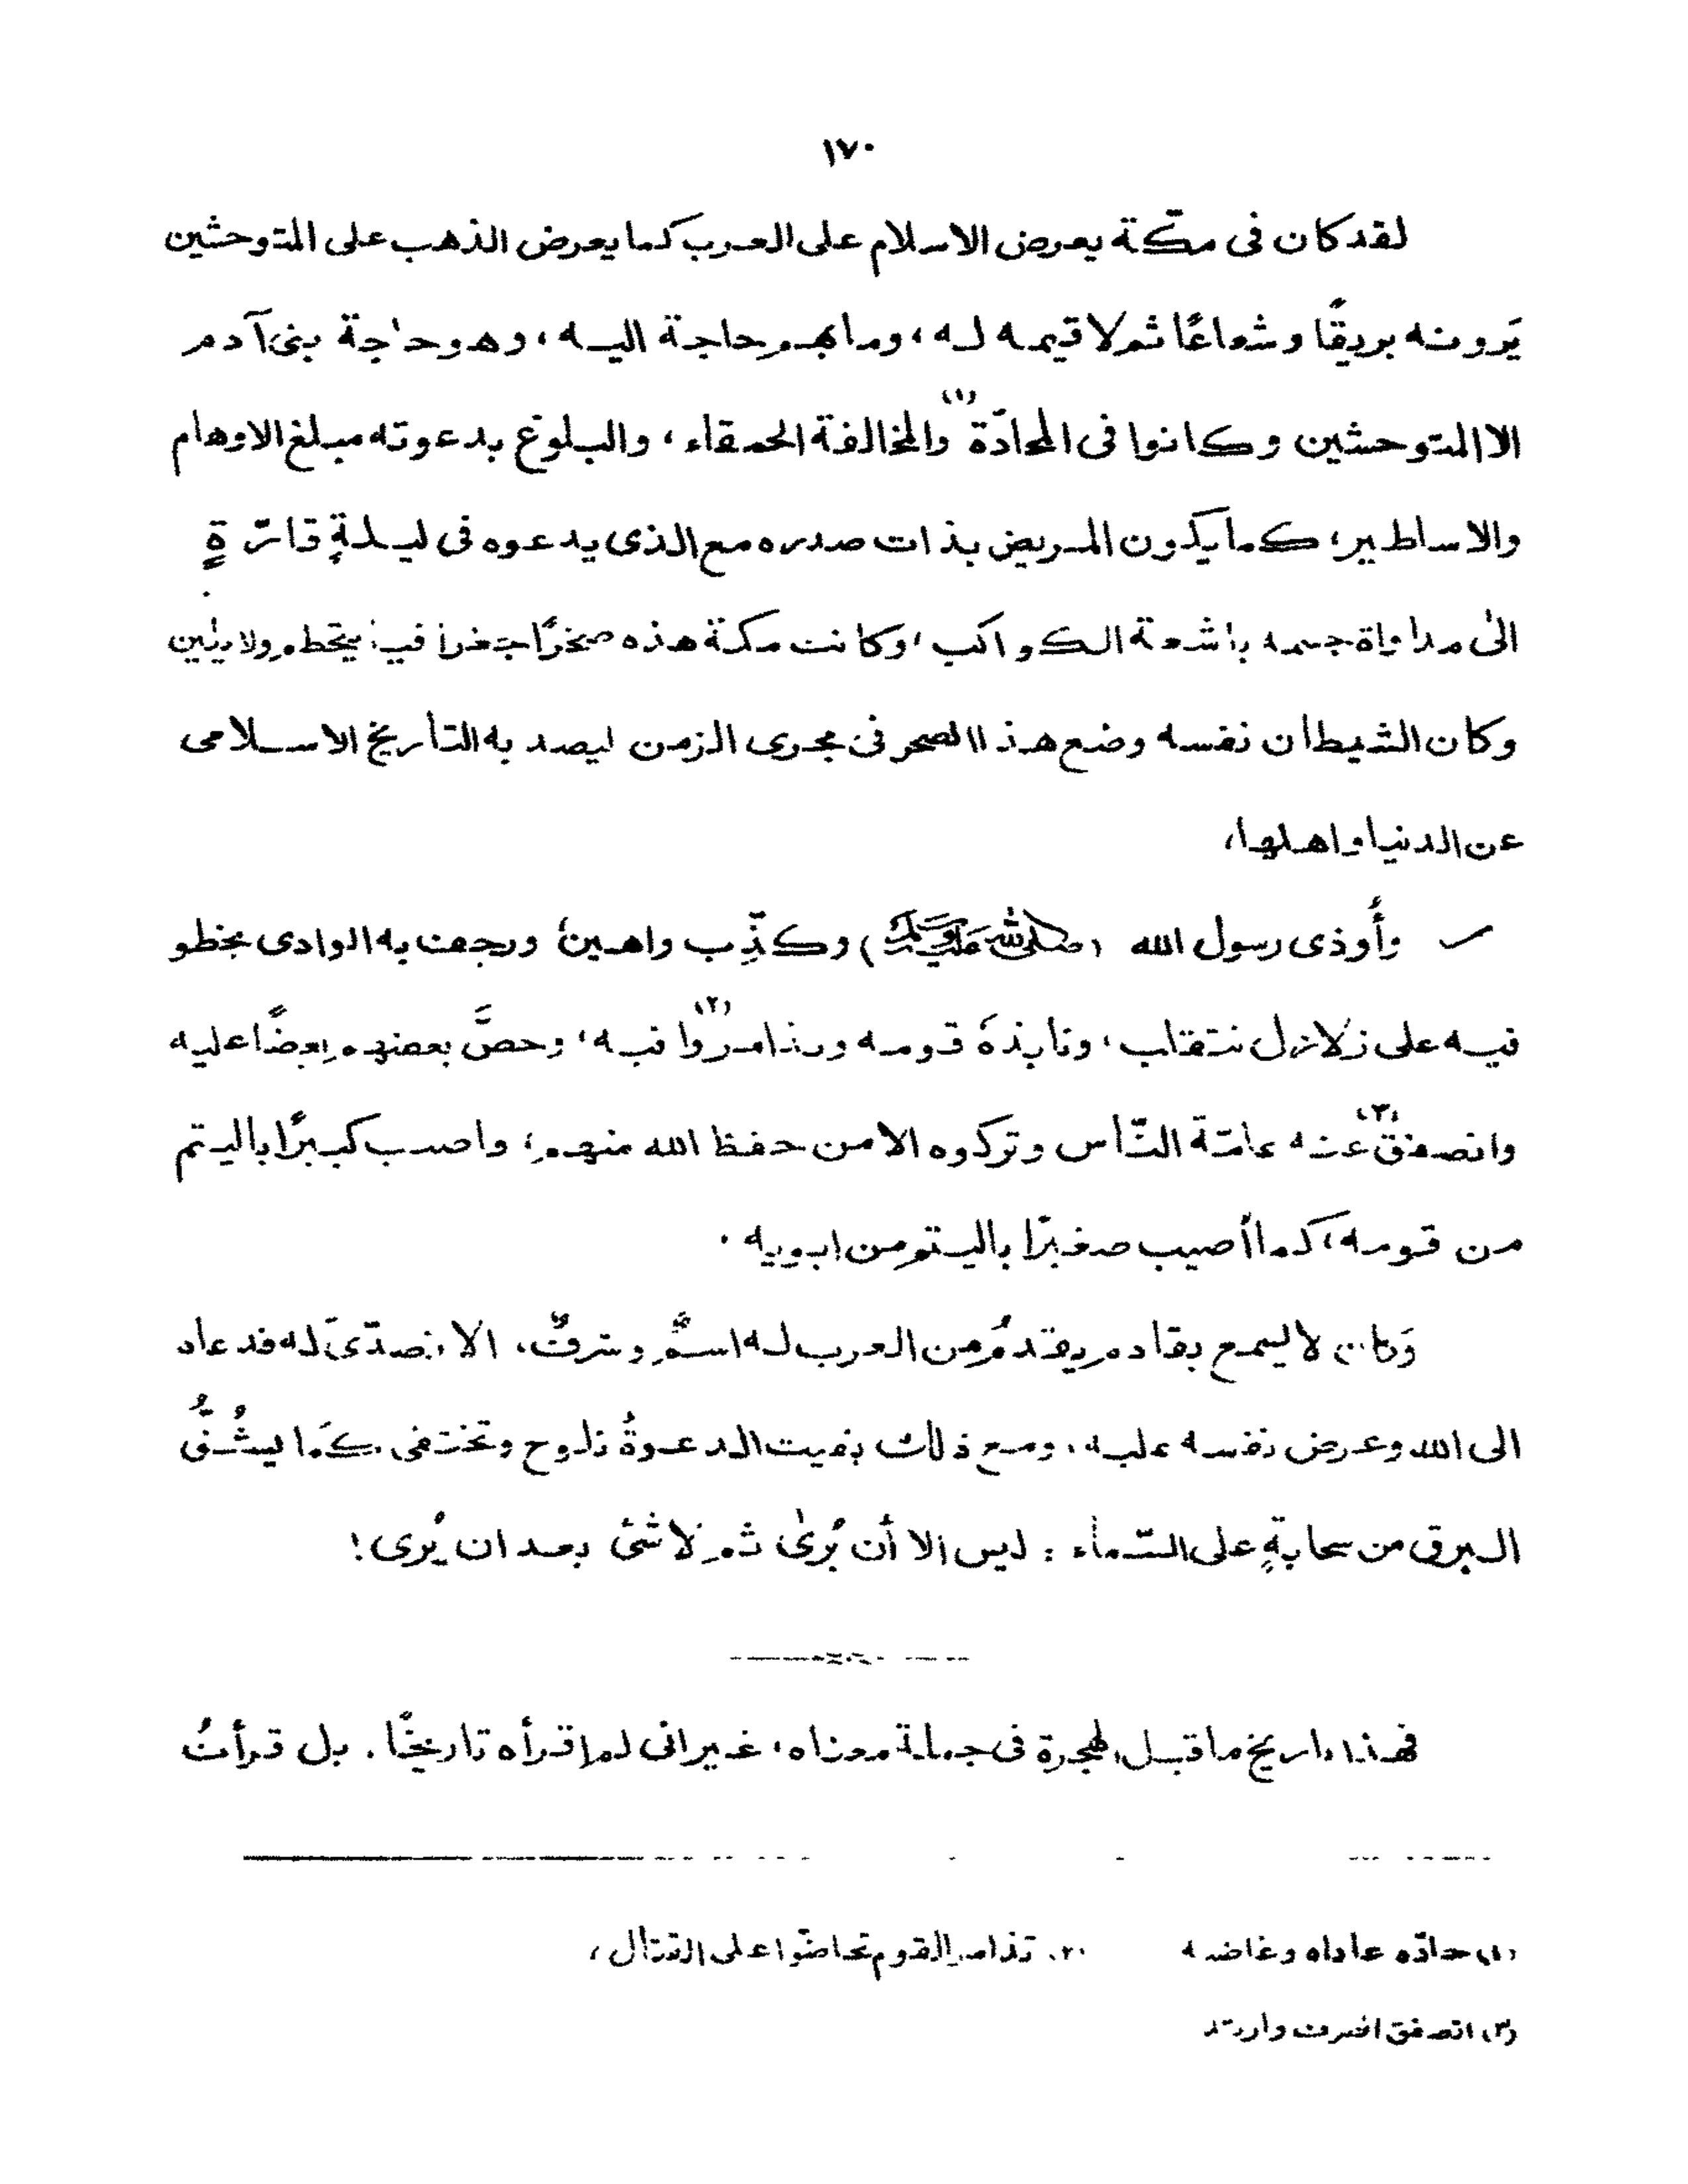 ١٧٠
لقد كان فى مكّة يعرض الاسلام على العرب كما يعرض الذهب على المتوحشين
يَرونه بريقًا وشعاعًا ثم لا قيمه له، وما بهم حاجة اليه، وهو حاجة بنى آدم
الا المتوحشين وكانوا فى المحادّة (١) والمخالفة الحمقاء، والبلوغ بدعوته مبلغ الاوهام
والاساطير، كما يكون المريض بذات صدره مع الذى يدعوه فى ليلةٍ قارّةٍ
الى مداواة جسمه باشعة الكواكب، وكانت مكة هذه صخرًا جغرافيا يتحطم ولا يلين
وكان الشيطان نفسه وضع هذا الصخر فى مجرى الزمن ليصد به التأريخ الاسلامى
عن الدنيا واهلها،
وأُوذى رسول الله (صلى الله عليه وسلم) وكذّب واهين، ورجفت به الوادى يخطو
فيه على زلازل تتقلب، ونابذهُ قومه وتذامروا (٢) فيه، وحصَّ بعضهم بعضًا عليه
وانصفق (٣) عنه عامّة النّاس وتركوه الا من حفظ الله منهم، واصيب كبيرًا باليتم
من قومه، كما أصيب صغيرًا باليتم من ابويه.
وَكان لا يسمع بقادم يقدمُ من العرب له اسمٌ وشرفٌ، الا تصدّىَ له فدعاه
الى الله وعرض نفسه عليه، ومع ذلك بقيت الدعوةُ تلوح وتختفى كَما يشُقُّ
البرق من سحابةٍ على السّماء: ليس الا أن يُرىٰ ثم لا شئ بعد ان يُرى!
فهذا تاريخ ما قبل الهجرة فى جملة معناه، غير انى لم اقرأه تاريخًا. بل قرأتُ
(١) حادّه عاداه وغاضبه (٢) تذامر القوم تحاضّوا على القتال،
(٣) انصفق انصرف وارتد